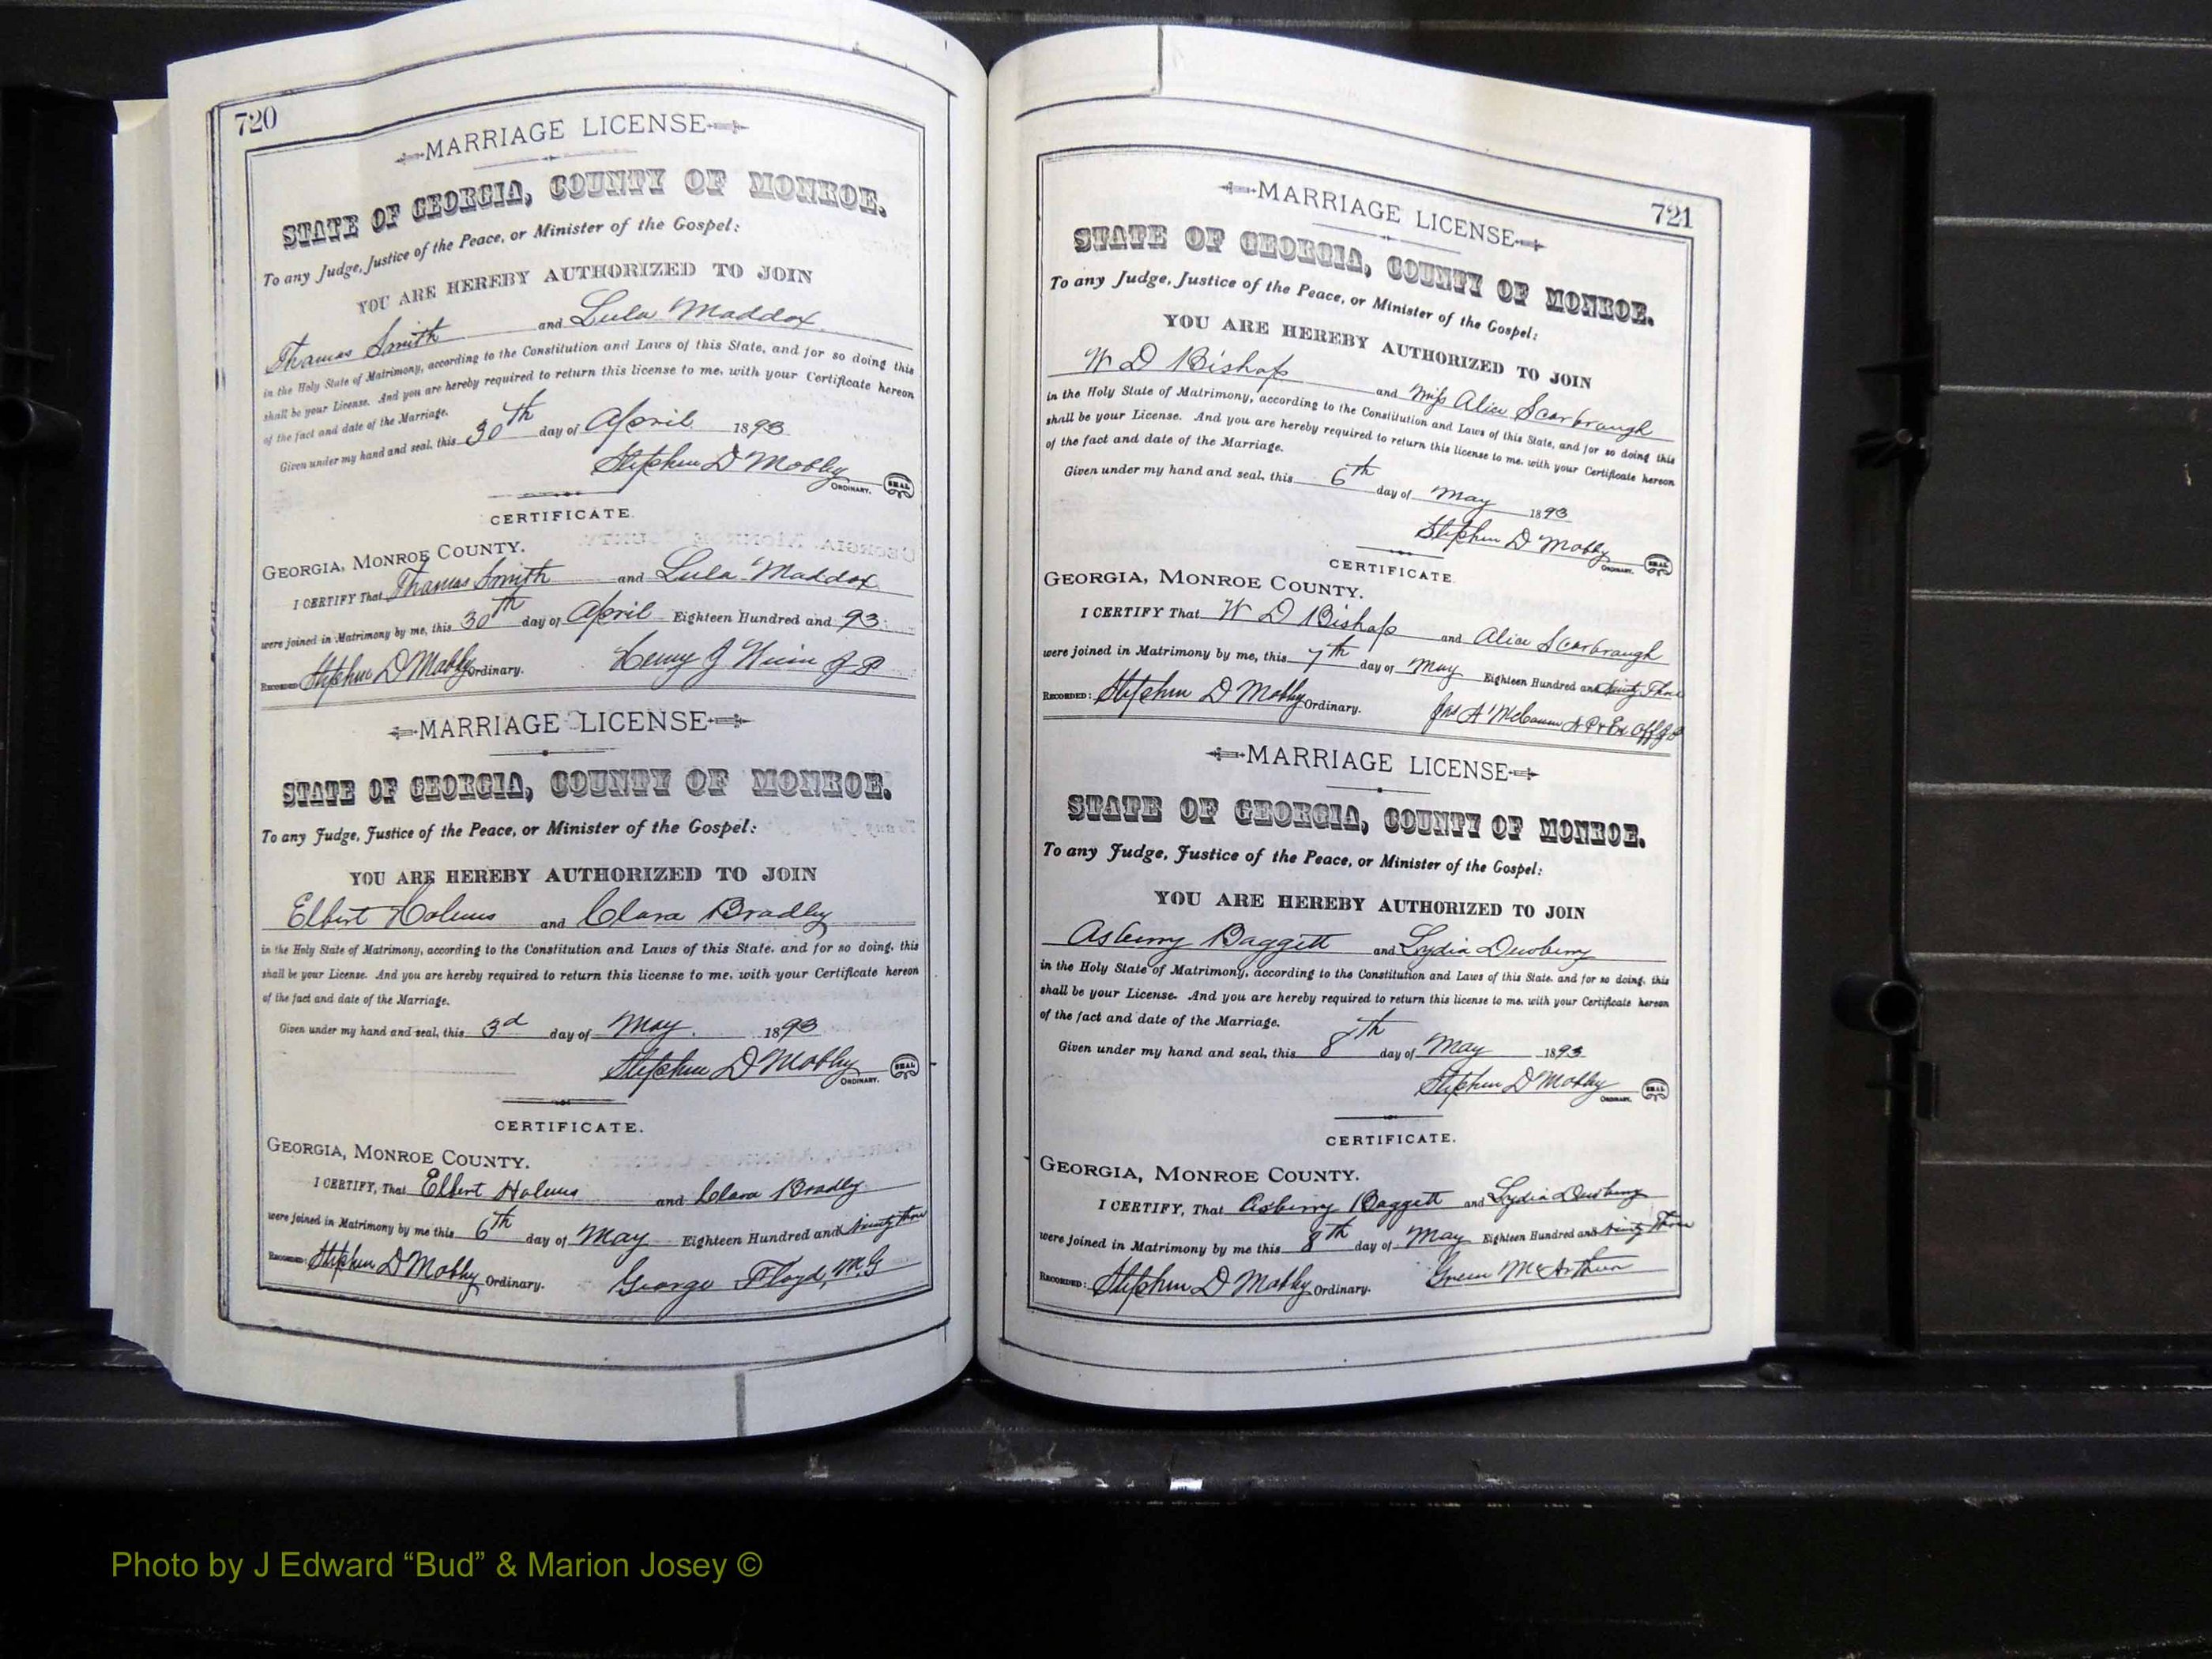 720
MARRIAGE LICENSE
STATE OF GEORGIA, COUNTY OF MONROE.
To any Judge, Justice of the Peace, or Minister of the Gospel:
YOU ARE HEREBY AUTHORIZED TO JOIN
Thomas Smith and Lula Maddox
in the Holy State of Matrimony, according to the Constitution and Laws of this State, and for so doing this
shall be your License. And you are hereby required to return this license to me, with your Certificate hereon
of the fact and date of the Marriage.
Given under my hand and seal, this 30th day of April 1893
Stephen D Mobley
ORDINARY. SEAL
CERTIFICATE.
GEORGIA, MONROE COUNTY.
I CERTIFY That Thomas Smith and Lula Maddox
were joined in Matrimony by me, this 30th day of April Eighteen Hundred and 93
RECORDED: Stephen D Mobley Ordinary. Henry J J P
MARRIAGE LICENSE
STATE OF GEORGIA, COUNTY OF MONROE.
To any Judge, Justice of the Peace, or Minister of the Gospel:
YOU ARE HEREBY AUTHORIZED TO JOIN
Elbert Holmes and Clara Bradley
in the Holy State of Matrimony, according to the Constitution and Laws of this State, and for so doing, this
shall be your License. And you are hereby required to return this license to me, with your Certificate hereon
of the fact and date of the Marriage.
Given under my hand and seal, this 3d day of May. 1893
Stephen D Mobley
ORDINARY. SEAL
CERTIFICATE.
GEORGIA, MONROE COUNTY.
I CERTIFY, That Elbert Holmes and Clara Bradley
were joined in Matrimony by me this 6th day of May Eighteen Hundred and Ninety three
RECORDED: Stephen D Mobley Ordinary. George Floyd, M.G
721
MARRIAGE LICENSE
STATE OF GEORGIA, COUNTY OF MONROE.
To any Judge, Justice of the Peace, or Minister of the Gospel:
YOU ARE HEREBY AUTHORIZED TO JOIN
W D Bishop and Miss Alice Scarbrough
in the Holy State of Matrimony, according to the Constitution and Laws of this State, and for so doing this
shall be your License. And you are hereby required to return this license to me, with your Certificate hereon
of the fact and date of the Marriage.
Given under my hand and seal, this 6th day of May 1893
Stephen D Mobley
ORDINARY. SEAL
CERTIFICATE.
GEORGIA, MONROE COUNTY.
I CERTIFY That W D Bishop and Alice Scarbrough
were joined in Matrimony by me, this 7th day of May Eighteen Hundred and Ninety Three
RECORDED: Stephen D Mobley Ordinary. Jas A N P & Ex Off J P
MARRIAGE LICENSE
STATE OF GEORGIA, COUNTY OF MONROE.
To any Judge, Justice of the Peace, or Minister of the Gospel:
YOU ARE HEREBY AUTHORIZED TO JOIN
Asberry Baggett and Lydia Dewberry
in the Holy State of Matrimony, according to the Constitution and Laws of this State, and for so doing, this
shall be your License. And you are hereby required to return this license to me, with your Certificate hereon
of the fact and date of the Marriage.
Given under my hand and seal, this 8th day of May 1893
Stephen D Mobley
ORDINARY. SEAL
CERTIFICATE.
GEORGIA, MONROE COUNTY.
I CERTIFY, That Asberry Baggett and Lydia Dewberry
were joined in Matrimony by me this 8th day of May Eighteen Hundred and Ninety Three
RECORDED: Stephen D Mobley Ordinary. Green McArthur
Photo by J Edward “Bud” & Marion Josey ©